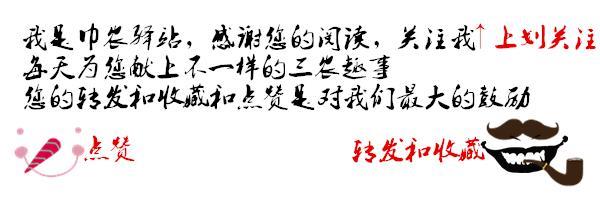 我是巾农驿站，感谢您的阅读，关注我↑上划关注
每天为您献上不一样的三农趣事
您的转发和收藏和点赞是对我们最大的鼓励
点赞 转发和收藏